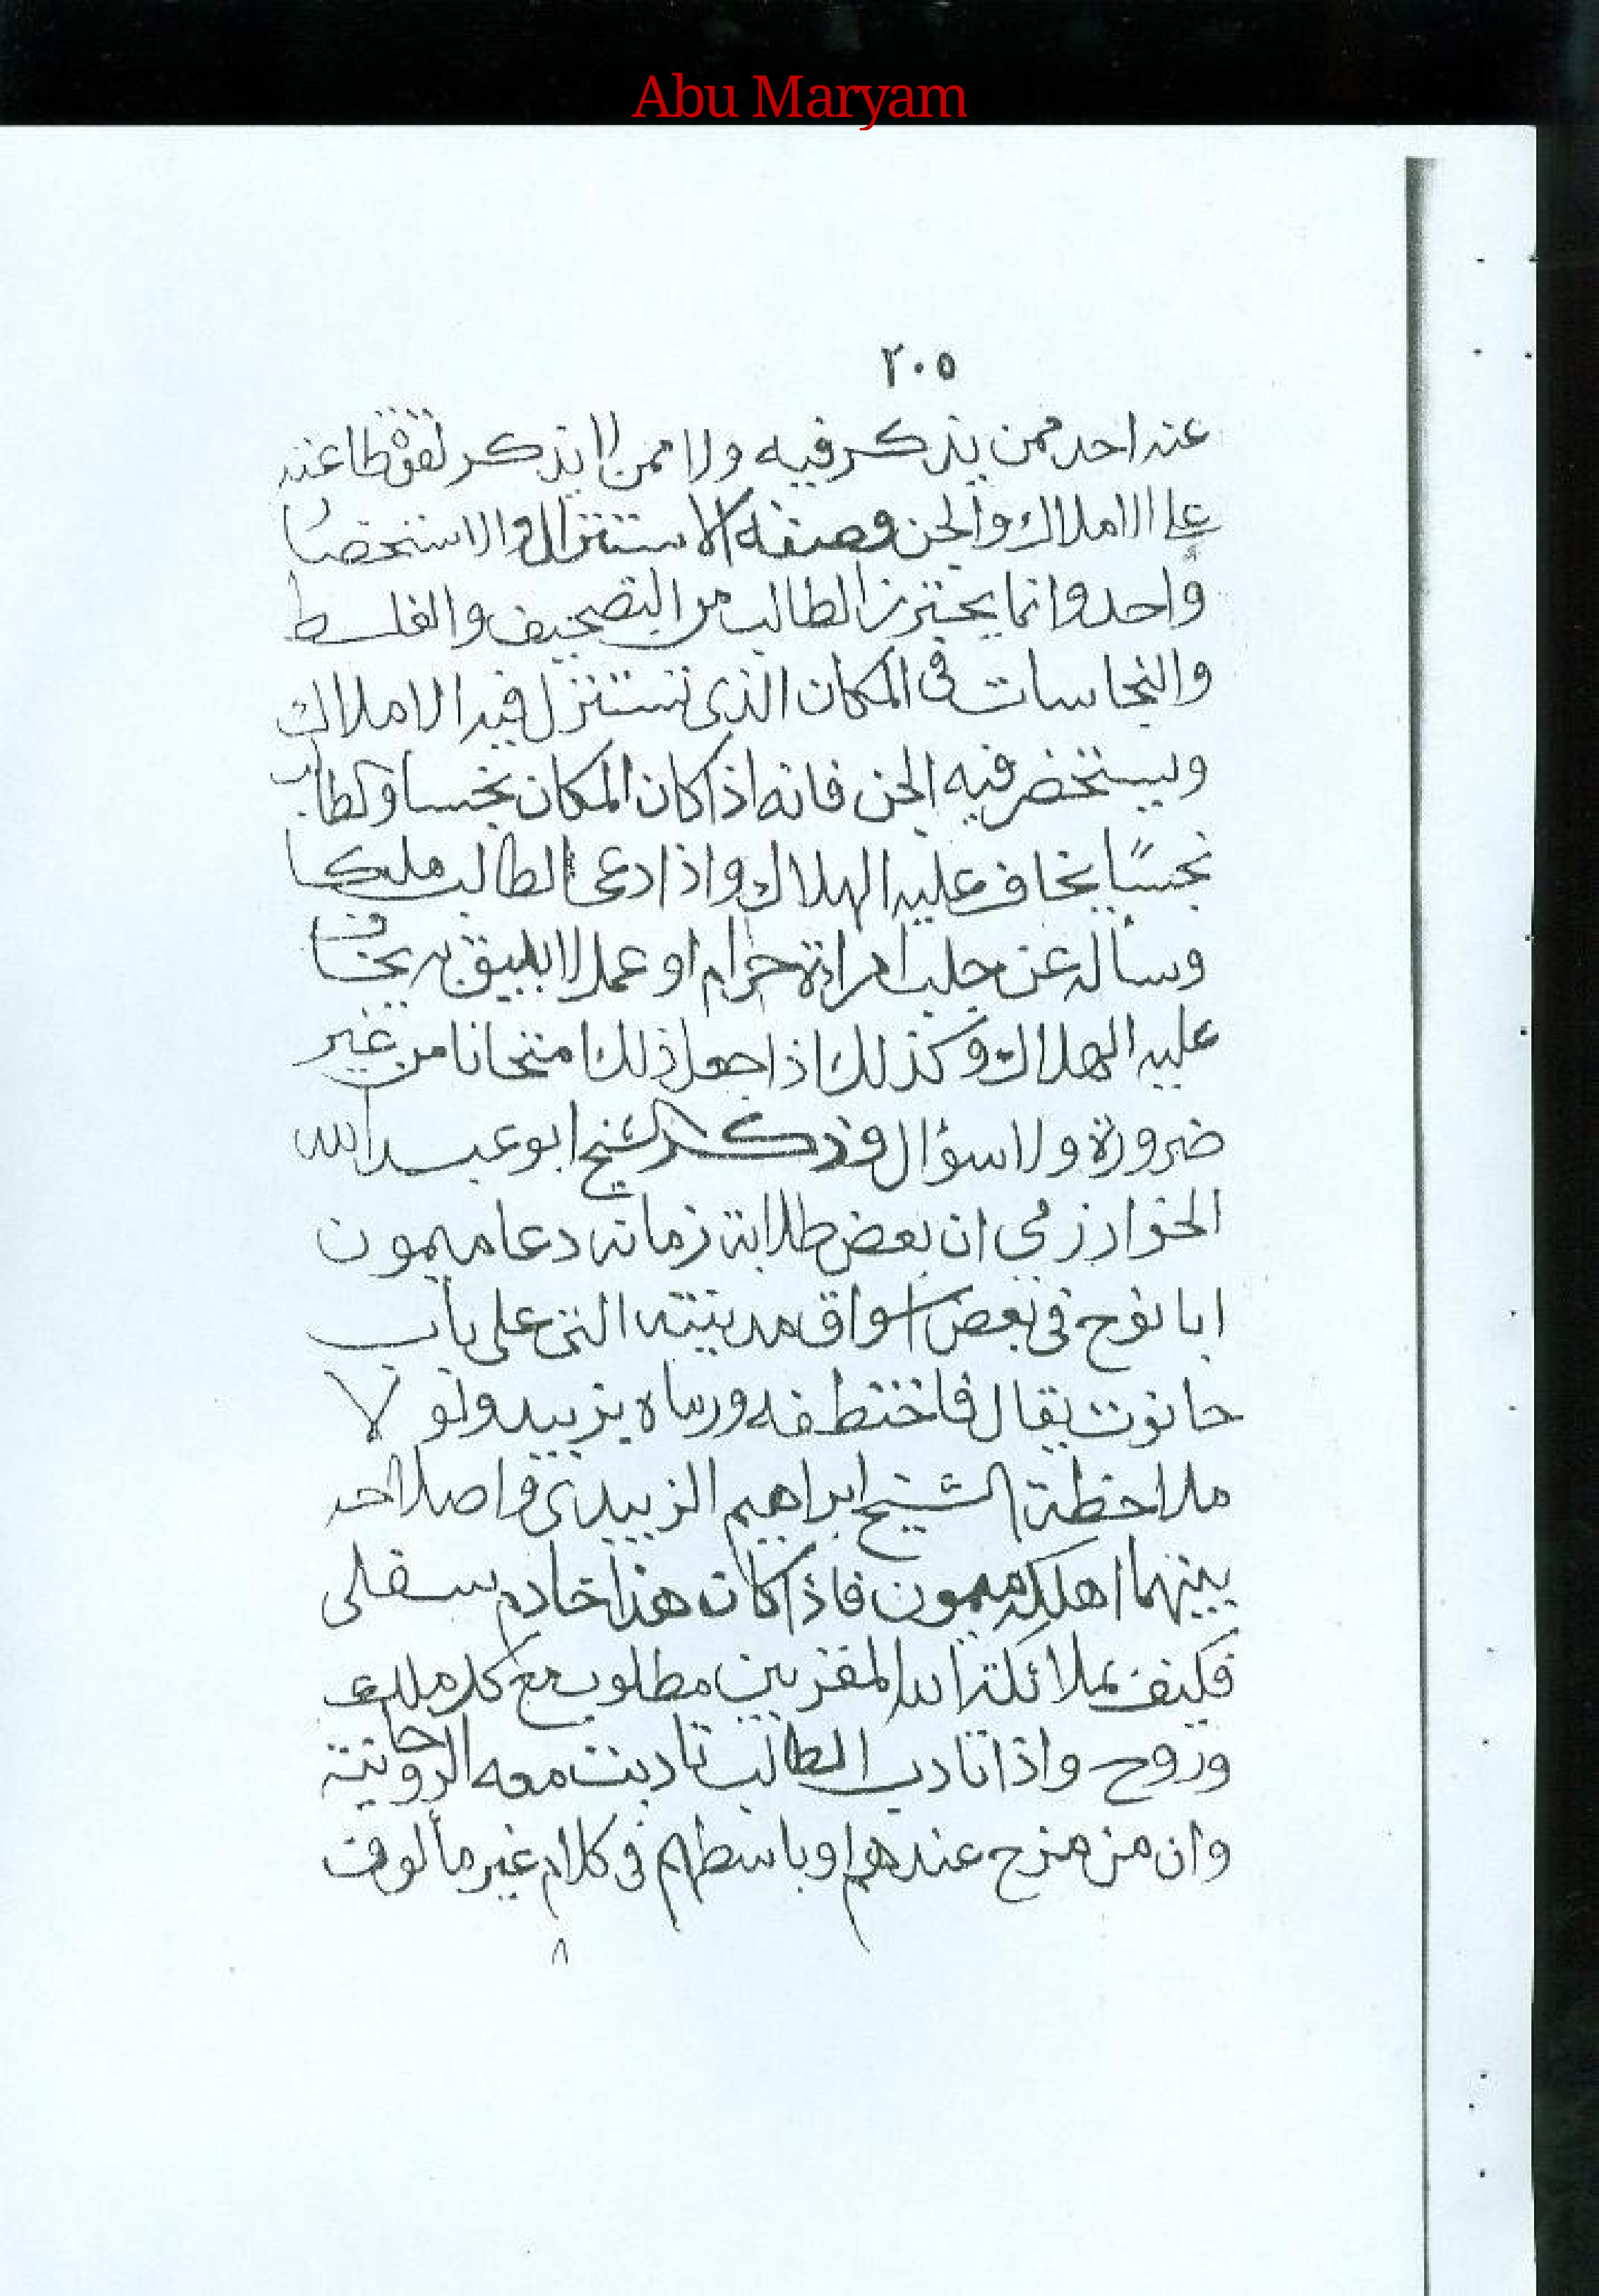 Abu Maryam
٢٠٥
عنه احد ممن يذكر فيه ولا ممن لا يذكر عنه
على الاملاك والجن وصفة الاستنزال والاستحضار
واحد وانما يحترز الطالب من التصحيف والغلط
والنجاسات فى المكان الذى تستنزل فيه الاملاك
ويستحضر فيه الجن فانه اذا كان المكان نجسا والطالب
نجسًا يخاف عليه الهلاك واذا دعى الطالب ملكا
وسأله عن جلب امراءة حرام او عملا لا يليق به يخاف
عليه الهلاك وكذلك اذا جعل ذلك امتحانا من غير
ضرورة ولا سؤال وذكر الشيخ ابو عبد الله
الخوارزمي ان بعض طلابة زمانه دعا ميمون
ابا نوح فى بعض اسواق مدينته التى على باب
حانوت بقال فاختطفه ورماه بزبيد ولولا
ملاحظة الشيخ ابراهيم الزبيدى واصلاحه
بينهما اهلكه ميمون فاذا كان هذا خادم سفلى
فكيف بملائكة الله المقربين مطلوب مع كل ملك
وروح واذا تادب الطالب تادبت معه الروحانية
وان مزح عندهم او باسطهم فى كلام غير مألوف
٨